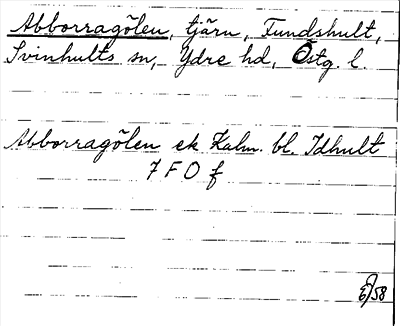 Abborragölen, tjärn, Fundshult,
Svinhults sn, Ydre hd, Östg. l.
Abborragölen ek Kalm. bl. Idhult
7 F 0 f